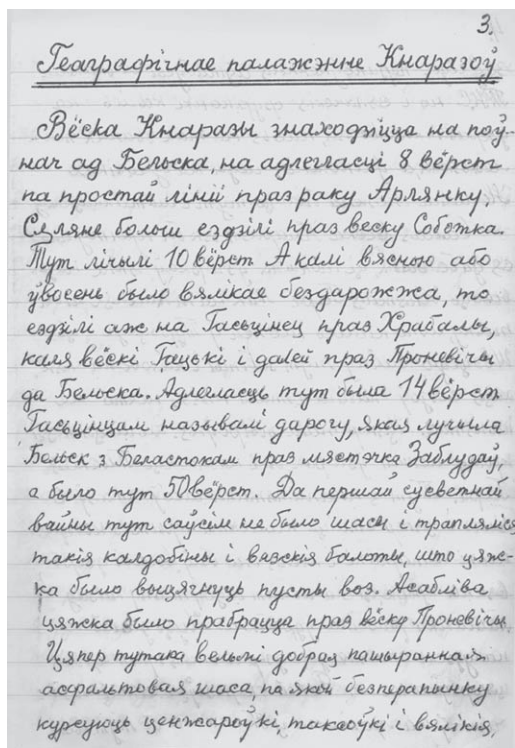 3.
Геаграфічнае палажэнне Кнаразоў
Вёска Кнаразы знаходзіцца на поў-
нач ад Бельска, на адлегласці 8 вёрст
па простай лініі праз раку Арлянку.
Сяляне больш ездзілі праз веску Соботка.
Тут лічылі 10 вёрст А калі вясною або
ўвосень было вялікае бездарожжа, то
ездзілі аж на Гасьцінец праз Храбалы,
каля вёскі Гацькі і далей праз Проневічы
да Бельска. Адлегласць тут была 14 вёрст
Гасьцінцам называлі дарогу, якая лучыла
Бельск з Беластокам праз мястэчка Заблудаў,
а было тут 50 вёрст. Да першай сусветнай
вайны тут саўсім не было шасы і трапляліся
такія калдобіны і вязскія балоты, што цяж-
ка было выцягнуць пусты воз. Асабліва
цяжка было прабрацца праз вёску Проневічы.
Цяпер тутака вельмі добрая пашыранная
асфальтовая шаса, па якой безперапынку
курсуюць ценжароўкі, таксоўкі і вялікія,